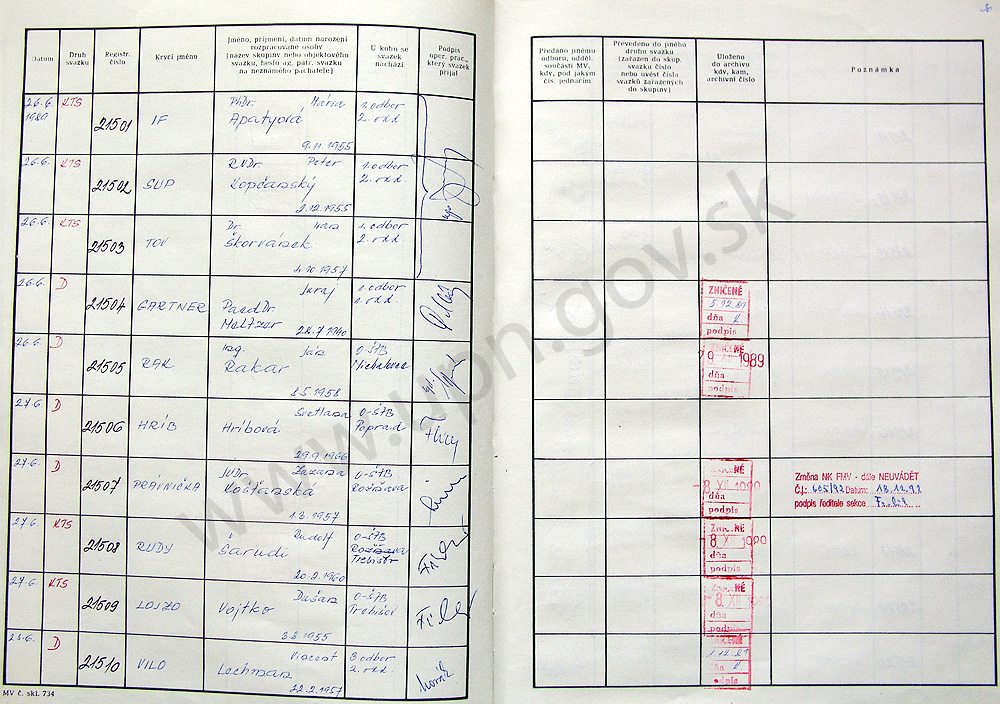 Datum
Druh svazku
Registr. číslo
Krycí jméno
Jméno, příjmení, datum narození
rozpracované osoby
(název skupiny nebo objektového
svazku, heslo ag. pátr. svazku
na neznámého pachatele)
U koho se
svazek
nachází
Podpis
oper. prac.,
který svazek
přijal
Předáno jinému
odboru, odděl.
součásti MV,
kdy, pod jakým
čís. jednacím
Převedeno do jiného
druhu svazku
(zařazen do skup.
svazku číslo
nebo uvést čísla
svazků zařazených
do skupiny)
Uloženo
do archivu
kdy, kam,
archivní číslo
Poznámka
26.6. 1989 KTS 21501 IF PhDr. Mária Apatyová 9.11.1955 1. odbor 2. odd.
26.6. KTS 21502 SUP RNDr. Peter Kopčanský 2.12.1955 1. odbor 2. odd.
26.6. KTS 21503 TOV Dr. Ivan Škorvánek 4.10.1957 1. odbor 2. odd.
26.6. D 21504 GARTNER Juraj PaedDr. Meltzer 22.7.1940 1. odbor 1. odd.
ZNIČENÉ
5.12.89
dňa
podpis
26.6. D 21505 RAK Ing. Ján Rakar 8.5.1958 O-ŠtB Michalovce
ZNIČENÉ
29 XII 1989
dňa
podpis
27.6. D 21506 HRÍB Svetlana Hríbová 29.9.1966 O-ŠtB Poprad
27.6. D 21507 PRÁVNIČKA JUDr. Zuzana Košťanská 1.3.1957 O-ŠtB Rožňava
ZNIČENÉ
- 8 XII 1989
dňa
podpis
Změna NK FMV - dále NEUVÁDĚT
Čj.: 605/92 Datum: 18.12.92
podpis ředitele sekce
27.6. KTS 21508 RUDY Rudolf Šarudi 20.2.1960 O-ŠtB Rožňava Trebišov
ZNIČENÉ
- 8 XII 1989
dňa
podpis
27.6. KTS 21509 LOJZO Dušan Vojtko 3.8.1955 O-ŠtB Trebišov
ZNIČENÉ
- 8 XII
dňa
podpis
28.6. D 21510 VILO Vincent Lechman 22.2.1957 3. odbor 2. odd.
ZNIČENÉ
1.12.89
dňa
podpis
MV č. skl. 734
www.upn.gov.sk